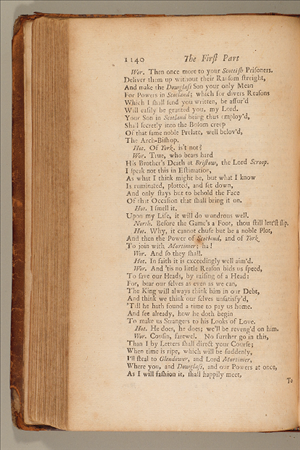 1140 The First Part
Wor. Then once more to your Scotish Prisoners.
Deliver them up without their Ransom streight,
And make the Dowglass Son your only Mean
For Powers in Scotland; which for divers Reasons
Which I shall send you written, be assur'd
Will easily be granted you, my Lord.
Your Son in Scotland being thus employ'd,
Shall secretly into the Bosom creep
Of that same noble Prelate, well belov'd,
The Arch-Bishop.
Hot. Of York, is't not?
Wor. True, who bears hard
His Brother's Death at Bristow, the Lord Scroop.
I speak not this in Estimation,
As what I think might be, but what I know
Is ruminated, plotted, and set down,
And only stays but to behold the Face
Of that Occasion that shall bring it on.
Hot. I smell it.
Upon my Life, it will do wondrous well.
North. Before the Game's a Foot, thou still let'st slip.
Hot. Why, it cannot chuse but be a noble Plot,
And then the Power of Scotland, and of York
To join with Mortimer; ha!
Wor. And so they shall.
Hot. In faith it is exceedingly well aim'd.
Wor. And 'tis no little Reason bids us speed,
To save our Heads, by raising of a Head:
For, bear our selves as even as we can,
The King will always think him in our Debt,
And think we think our selves unsatisfy'd,
'Till he hath found a time to pay us home.
And see already, how he doth begin
To make us Strangers to his Looks of Love.
Hot. He does, he does; we'll be reveng'd on him.
Wor. Cousin, farewel. No further go in this,
Than I by Letters shall direct your Course;
When time is ripe, which will be suddenly,
I'll steal to Glendower, and Lord Mortimer,
Where you, and Dowglass, and our Powers at once,
As I will fashion it, shall happily meet,
To